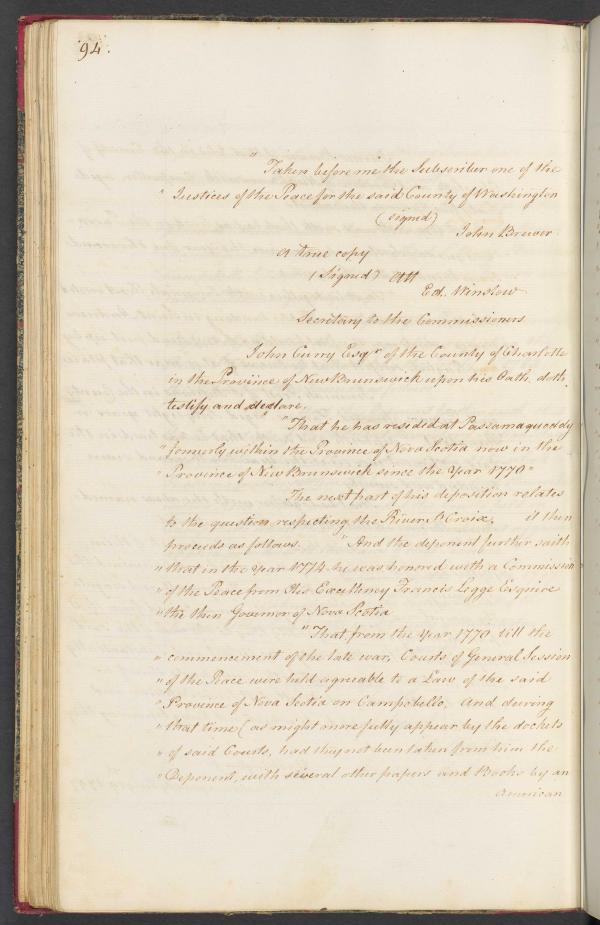 94.
" Taken before me the Subscriber one of the
" Justices of the Peace for the said County of Washington
(signed)
John Brewer
A true copy
(Signed) Att
Ed. Winslow
Secretary to the Commissioners
John Curry Esqr of the County of Charlotte
in the Proviince of New Brunswick upon his Oath, doth
testify and declare.
" That he has resided at Passamaquoddy
" formerly within the Province of Nova Scotia now in the
" Province of New Brunswick since the Year 1770"
The next part of his deposition relates
to the question respecting the River St Croix, it then
proceeds as follows. "And the deponent further saith
" that in the Year 1774. he was honored with a Commission
" of the Peace from His Excellency Francis Legge Esquire
" the then Governor of Nova Scotia
" That from the Year 1770 till the
" commencement of the late war, Courts of General Session
" of the Peace were held agreable to a Law of the said
" Province of Nova Scotia on Campobello, And during
" that time (as might more fully appear by the dockets
" of said Courts, had they not been taken from him the
" Deponent, with several other papers and Books by an
American